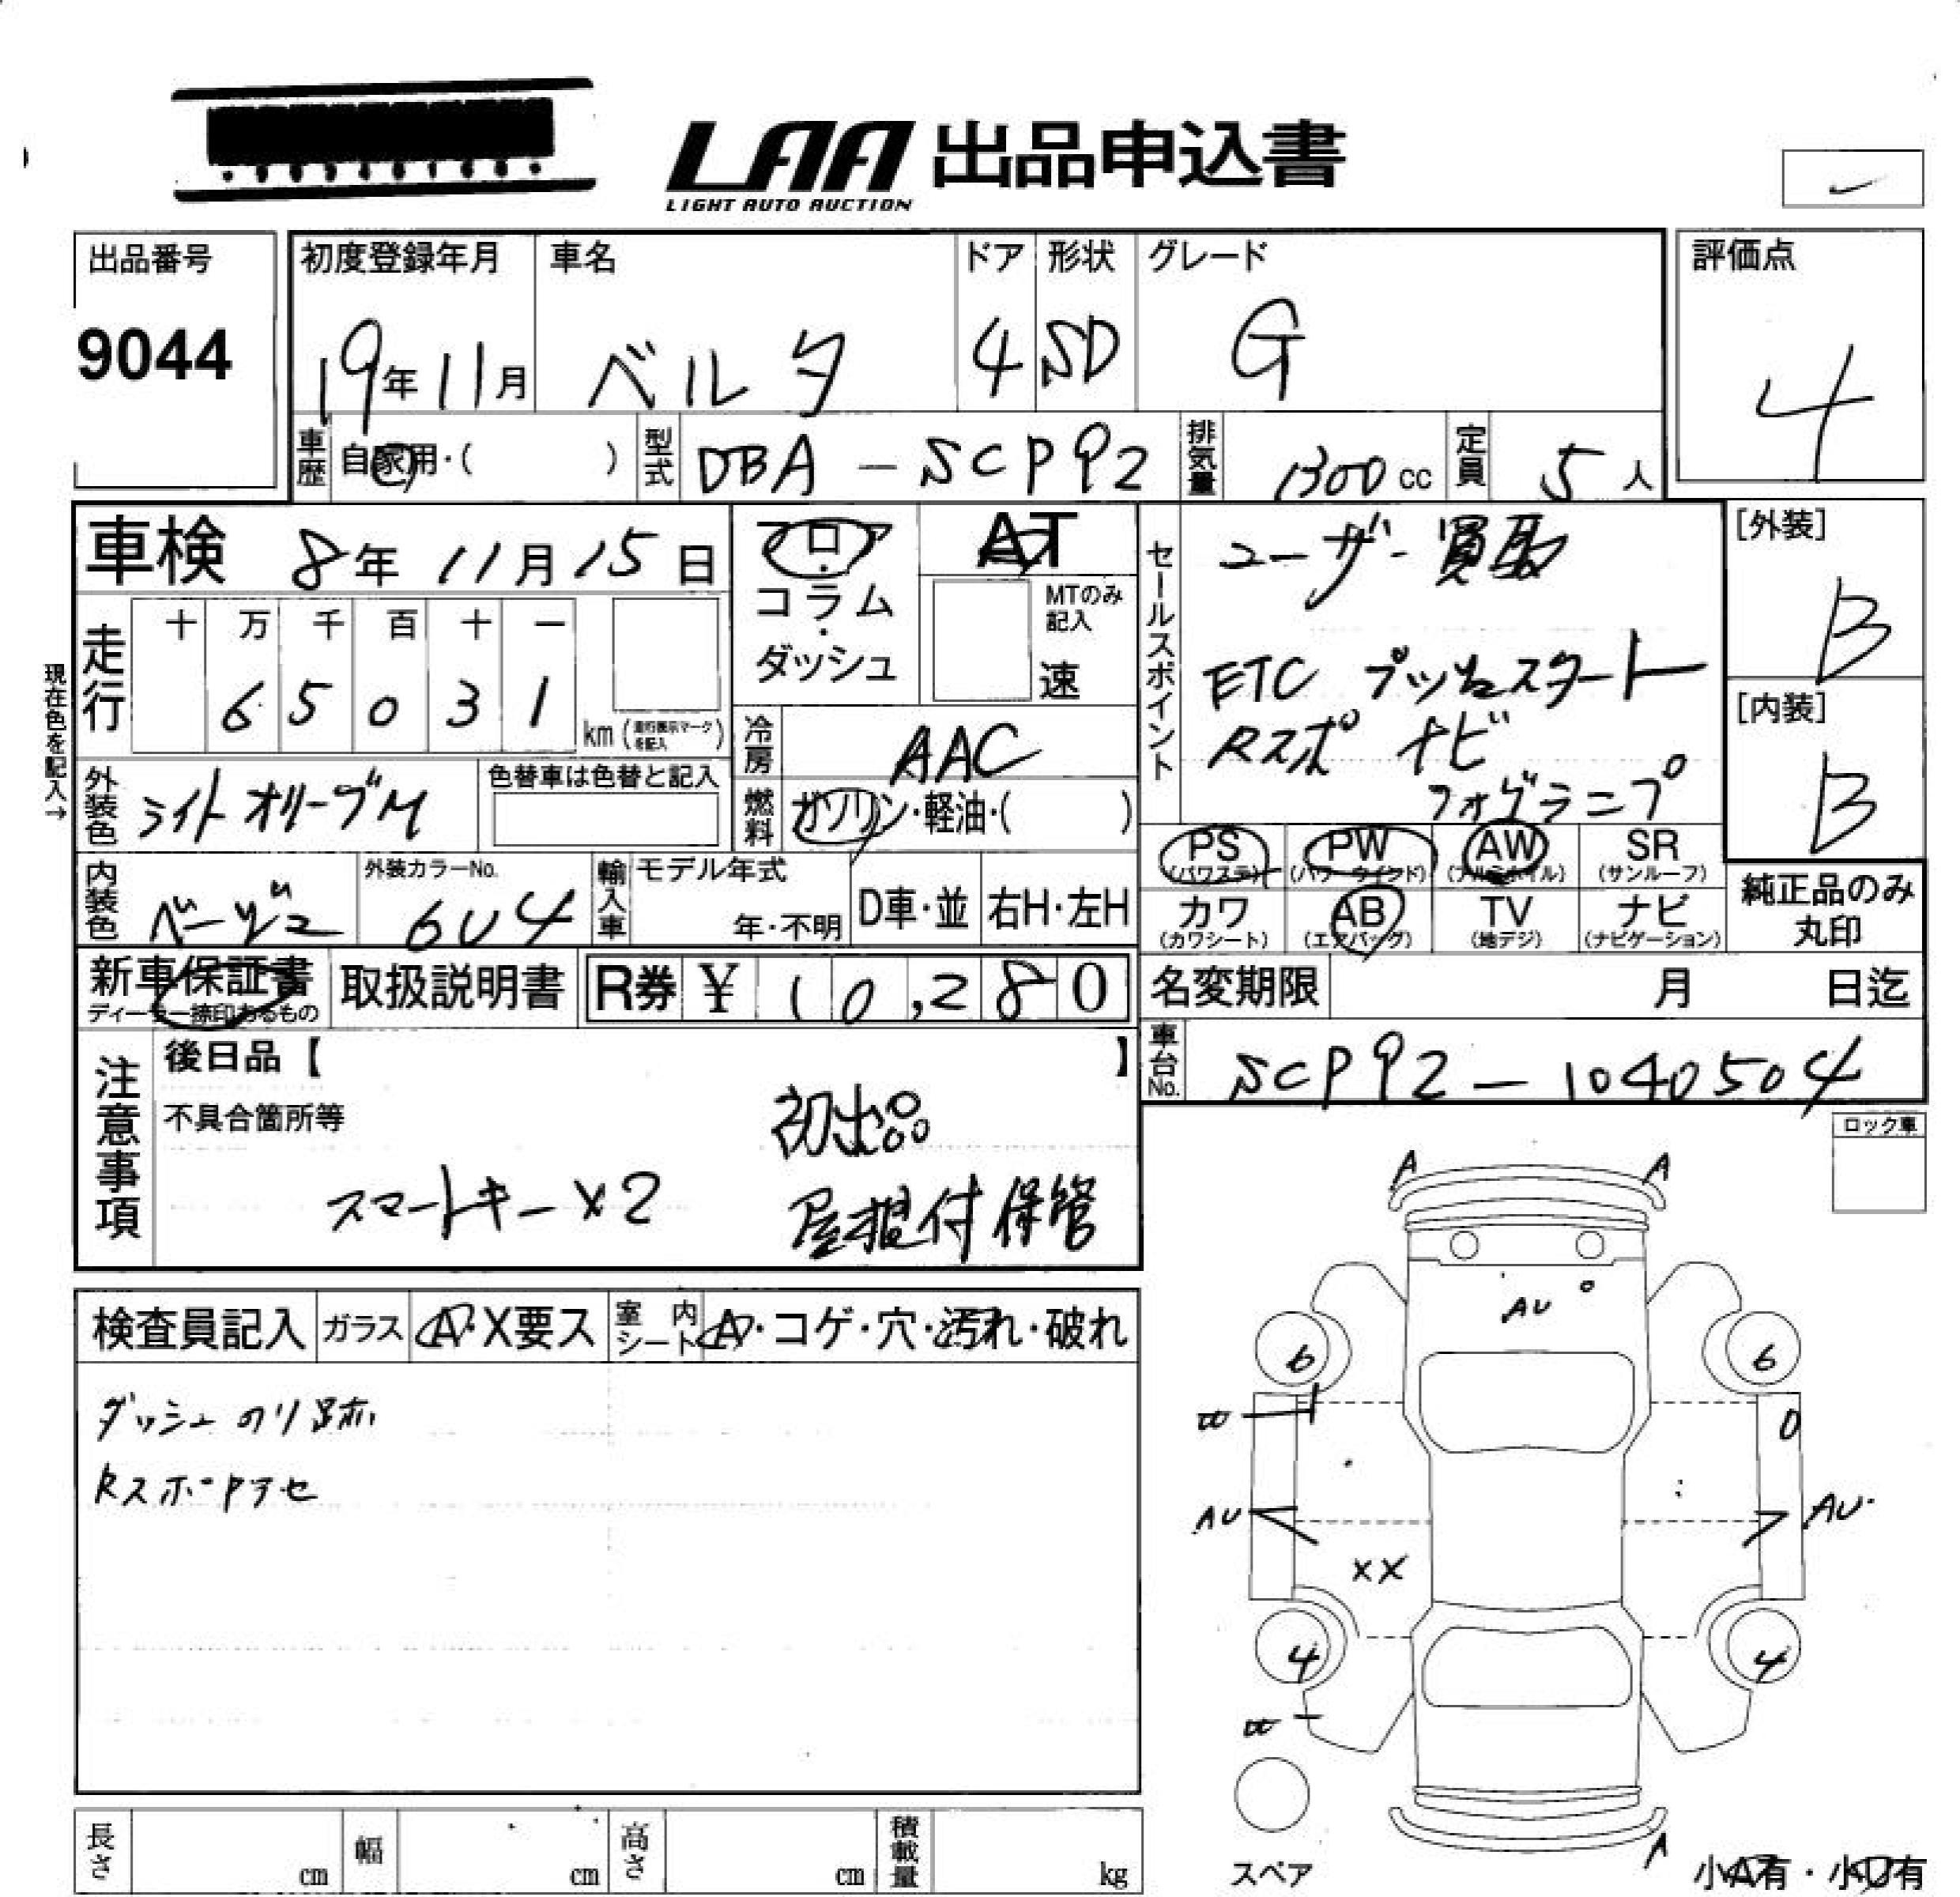 LAA 出品申込書
LIGHT AUTO AUCTION
出品番号
9044
初度登録年月
19年11月
車名
ベルタ
ドア
4
形状
SD
グレード
G
評価点
4
車歴 自家用・( )
型式 DBA-SCP92
排気量 1300cc
定員 5人
車検 8年11月15日
フロア・コラム・ダッシュ
AT
MTのみ記入
速
セールスポイント
ユーザー買取
ETC プッシュスタート
Rスポ ナビ
フォグランプ
[外装]
B
[内装]
B
現在色を記入→
走行
十 万 千 百 十 一
6 5 0 3 1
km (走行表示マークを記入)
冷房 AAC
燃料 ガソリン・軽油・( )
外装色 ライトオリーブM
色替車は色替と記入
内装色 ベージュ
外装カラーNo.
6U4
輸入車
モデル年式
年・不明
D車・並
右H・左H
PS (パワステ)
PW (パワーウインド)
AW (アルミホイル)
SR (サンルーフ)
カワ (カワシート)
AB (エアバッグ)
TV (地デジ)
ナビ (ナビゲーション)
純正品のみ丸印
新車保証書
ディーラー捺印あるもの
取扱説明書
R券 ¥ 10,280
名変期限 月 日迄
車台No. SCP92-1040504
注意事項
後日品【 】
不具合箇所等
初出品
スマートキー×2
屋根付保管
ロック車
検査員記入
ガラス A・X要ス
室内シート A・コゲ・穴・汚れ・破れ
ダッシュのり跡
A A
AU
6 6
AU AU
XX
4 4
A
スペア
小A有・小U有
長さ cm
幅 cm
高さ cm
積載量 kg